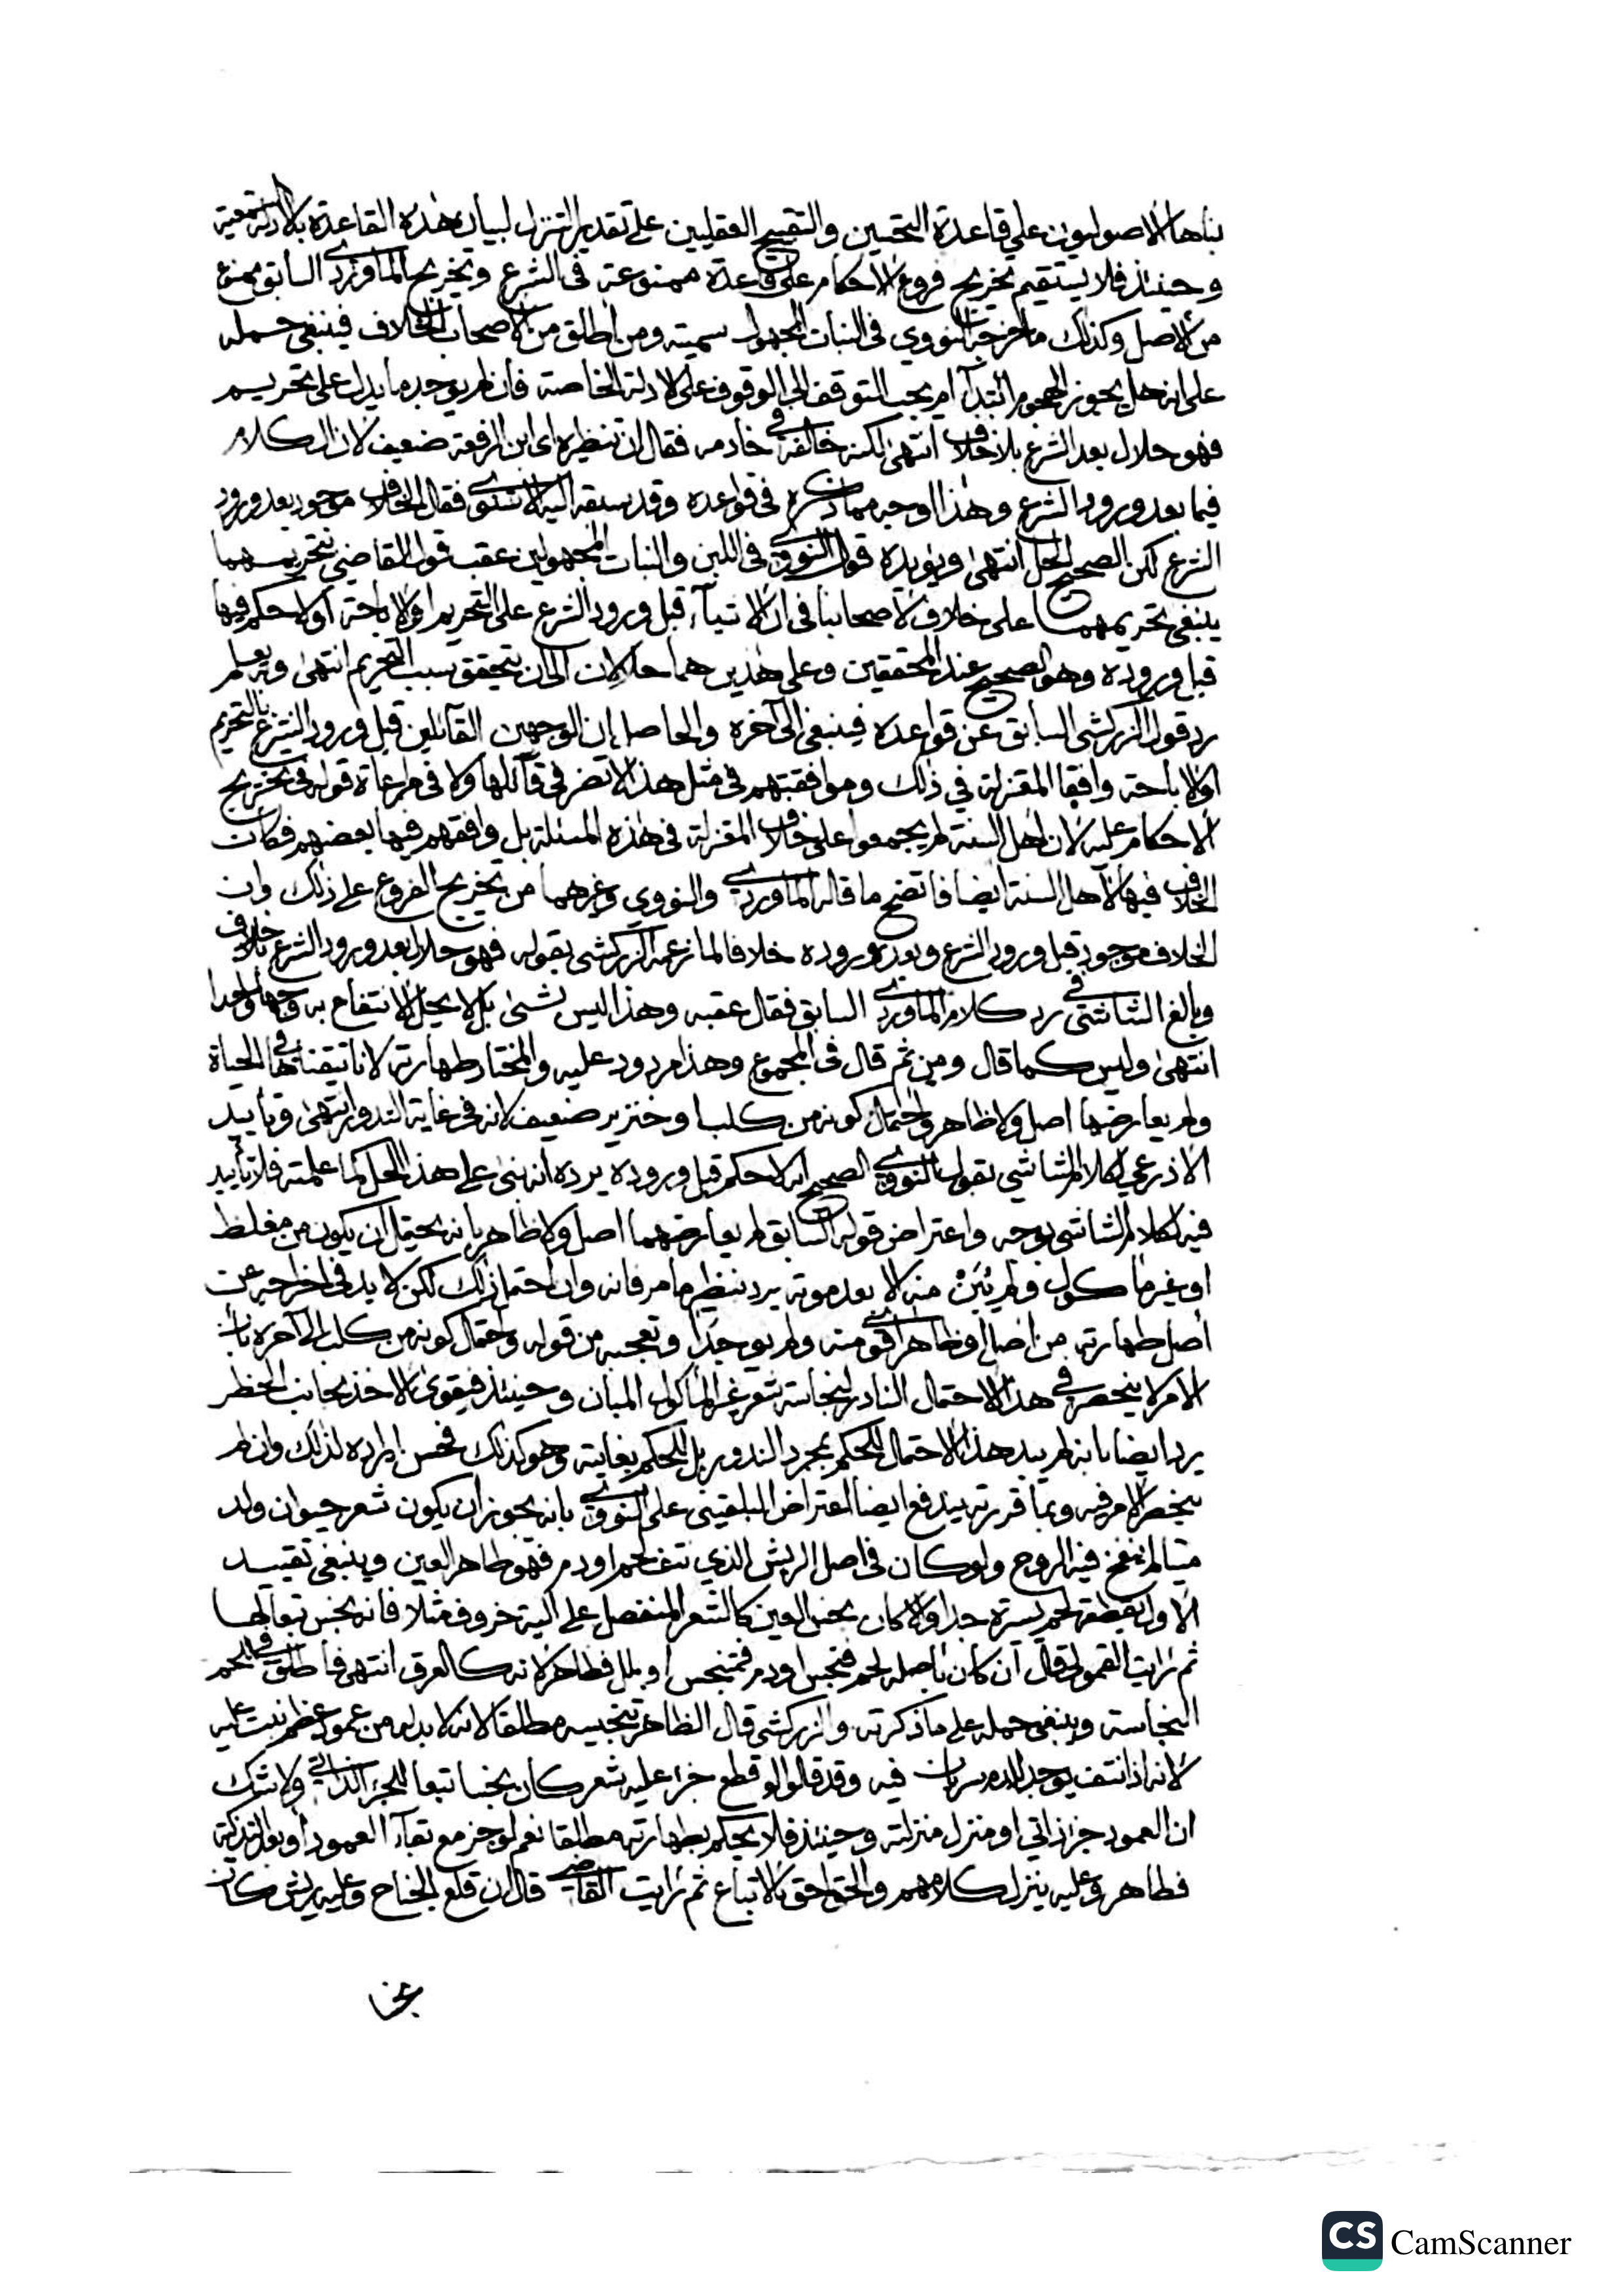 بناها الاصوليون علي قاعدة التحسين والتقبيح العقليين على تقدير التنزل لبيان هذه القاعدة بالادلة السمعية
وحينئذ فلا يستقيم تخريج فروع الاحكام على قاعدة ممنوعة في الشرع وتخريج الماوردي السابق ممنوع
من الاصل وكذلك ما خرجه النووي في النبات المجهول سميته ومن اطلق من الاصحاب الخلاف فينبغي حمله
على انه هل يجوز الهجوم ابتدآ ام يجب التوقف الي الوقوف على الادلة الخاصة فان لم يوجد ما يدل على تحريم
فهو حلال بعد الشرع بلا خلاف انتهى لكنه خالفه في خادمه فقال ان تنظير اى ابن الرفعة ضعيف لان الكلام
فيما بعد ورود الشرع وهذا اوجه مما ذكره في قواعده وقد سبقه اليه الاسنوى فقال الخلاف موجود بعد ورود
الشرع لكن الصحيح الحل انتهى ويؤيده قول النووي في اللبن والنبات المجهولين عقب قول القاضي بتحريمهما
ينبغي تحريمهما على خلاف لاصحابنا في ان الاشيآء قبل ورود الشرع على التحريم او الاباحة او لا حكم فيها
قبل وروده وهو الصحيح عند المحققين وعلى هذين هما حلالان الى ان يتحقق سبب التحريم انتهى وبه يعلم
رد قول الزركشي السابق عن قواعده فينبغي الى آخره والحاصل ان الوجهين القائلين قبل ورود الشرع بالتحريم
او الاباحة وافقا المعتزلة في ذلك وموافقتهم في مثل هذا لا تضر في قآئلها ولا في مراعاة قوله في تخريج
الاحكام عليه لان اهل السنة لم يجمعوا على خلاف المعتزلة في هذه المسئلة بل وافقهم فيها بعضهم فكان
الخلاف فيها لاهل السنة ايضا فاتضح ما قاله الماوردي والنووي وغيرهما من تخريج الفروع على ذلك وان
الخلاف موجود قبل ورود الشرع وبعد وروده خلافا لما زعمه الزركشي بقوله فهو حلال بعد ورود الشرع بلا خلاف
وبالغ الشاشي في رد كلام الماوردي السابق فقال عقبه وهذا ليس بشئ بل لا يحل الانتفاع به وجها واحدا
انتهى وليس كما قال ومن ثم قال في المجموع وهذا مردود عليه والمختار طهارته لانا تيقناها في الحياة
ولم يعارضها اصل ولا ظاهر واحتمال كونه من كلب او خنزير ضعيف لانه في غاية الندور انتهى وتاييد
الاذرعي لكلام الشاشي بقول النووي الصحيح انه لا حكم قبل وروده يرده انه بنى على هذا الحل كما علمته فلا تأييد
فيه لكلام الشاشي بوجه واعتراض قوله السابق لم يعارضهما اصل ولا ظاهر بانه يحتمل ان يكون من مغلظ
او غير ماكول ولم يُبَنْ منه الا بعد موته يرد بنظير ما مر فانه وان احتمل ذلك لكن لا بد في اخراجه عن
أصل طهارته من اصل او ظاهر اقوى منه ولم يوجدا وتعجبه من قوله واحتمال كونه من كلب الى آخره بان
الامر لا ينحصر في هذا الاحتمال النادر لنجاسة شعر غير الماكول المبان وحينئذ فيقوى الاخذ بجانب الحظر
يرد ايضا بانه لم يبد هذا الاحتمال للحكم بمجرد الندور بل للحكم بغايته وهو كذلك فحسن ايراده لذلك وان لم
ينحصر الامر فيه وبما قررته يندفع ايضا اعتراض البلقيني على النووي بانه يجوز ان يكون شعر حيوان ولد
ميتا لم ينفخ فيه الروح ولو كان في اصل الريش الذي نتف لحم او دم فهو طاهر العين وينبغي تقييد
الاول بقطعة لحم يسيرة جدا والا كان نجس العين كالشعر المنفصل على الية خروف مثلا فانه نجس تبعا لها
ثم رايت القمولي قال ان كان باصله لحم فنجس او دم فمتنجس او بلل فطاهر لانه كالعرق انتهى فاطلق في اللحم
النجاسة وينبغي حمله على ما ذكرته والزركشي قال الظاهر تنجيسه مطلقا لانه لا بد له من عمود عظم نبت عليه
لانه اذا نتف يوجد للدم سريان فيه وقد قالوا لو قطع جزء عليه شعر كان نجسا تبعا للجزء الذاتي ولا شك
ان العمود جزء ذاتي او منزل منزلته وحينئذ فلا يحكم بطهارته مطلقا نعم لو جز مع بقآء العمود او بعد التذكية
فطاهر وعليه ينزل كلامهم والحق احق بالاتباع ثم رايت القاضي قال ان قلع الجناح وعليه ريش كان
نجسا
CS CamScanner